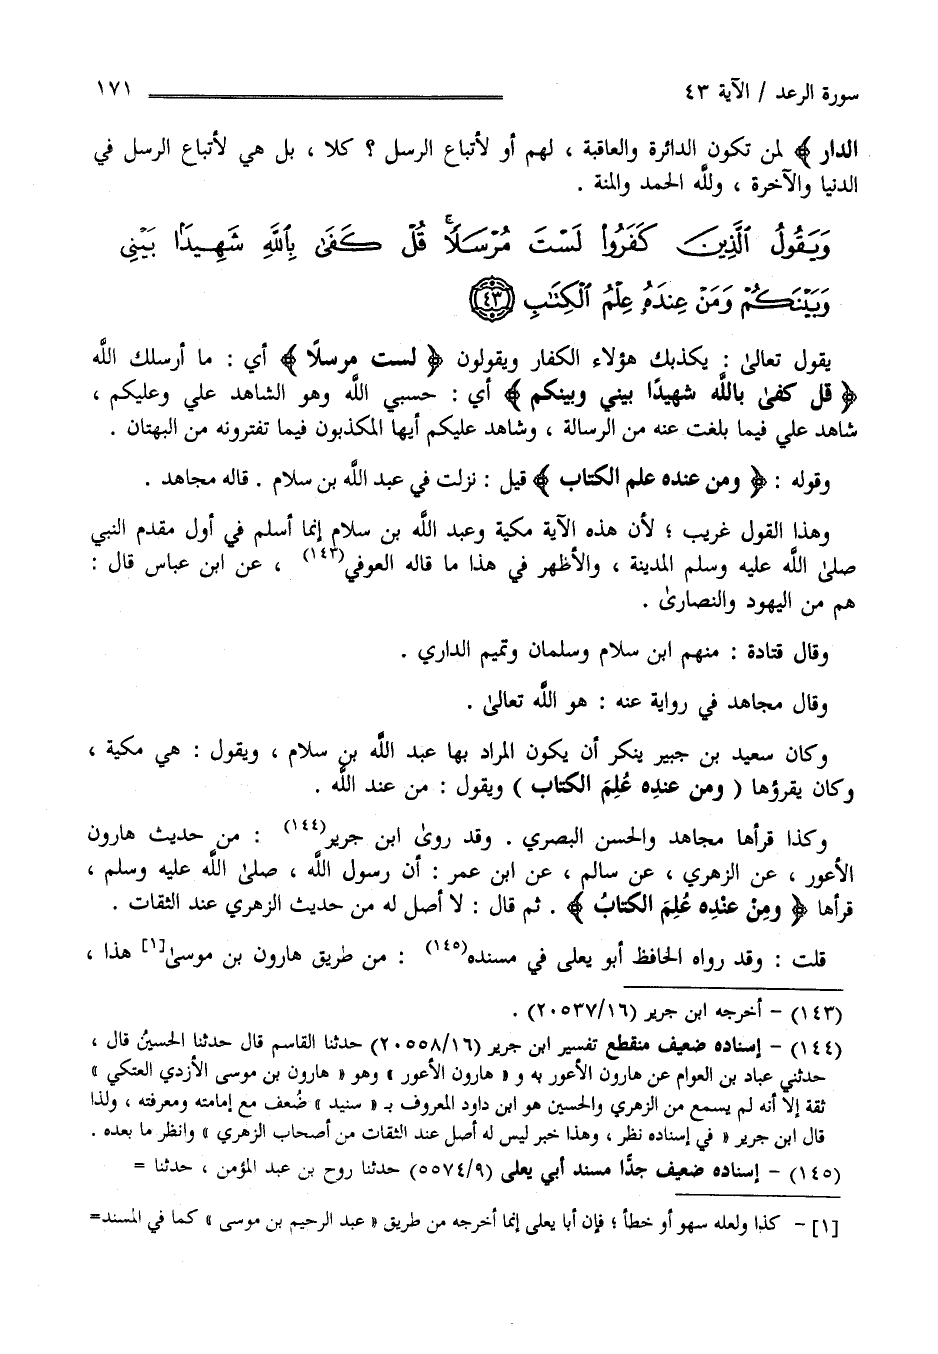 سورة الرعد / الآية ٤٣ ١٧١
الدار ﴾ لمن تكون الدائرة والعاقبة ، لهم أو لأتباع الرسل ؟ كلا ، بل هي لأتباع الرسل في
الدنيا والآخرة ، وللَّه الحمد والمنة .
وَيَقُولُ ٱلَّذِينَ كَفَرُوا۟ لَسْتَ مُرْسَلًا ۚ قُلْ كَفَىٰ بِٱللَّهِ شَهِيدًۢا بَيْنِى
وَبَيْنَكُمْ وَمَنْ عِندَهُۥ عِلْمُ ٱلْكِتَـٰبِ ﴿٤٣﴾
يقول تعالىٰ : يكذبك هؤلاء الكفار ويقولون ﴿ لست مرسلًا ﴾ أي : ما أرسلك اللَّه
﴿ قل كفىٰ باللَّه شهيدًا بيني وبينكم ﴾ أي : حسبي اللَّه وهو الشاهد علي وعليكم ،
شاهد علي فيما بلغت عنه من الرسالة ، وشاهد عليكم أيها المكذبون فيما تفترونه من البهتان .
وقوله : ﴿ ومن عنده علم الكتاب ﴾ قيل : نزلت في عبد اللَّه بن سلام . قاله مجاهد .
وهذا القول غريب ؛ لأن هذه الآية مكية وعبد اللَّه بن سلام إنما أسلم في أول مقدم النبي
صلىٰ اللَّه عليه وسلم المدينة ، والأظهر في هذا ما قاله العوفي(١٤٣) ، عن ابن عباس قال :
هم من اليهود والنصارىٰ .
وقال قتادة : منهم ابن سلام وسلمان وتميم الداري .
وقال مجاهد في رواية عنه : هو اللَّه تعالىٰ .
وكان سعيد بن جبير ينكر أن يكون المراد بها عبد اللَّه بن سلام ، ويقول : هي مكية ،
وكان يقرؤها ( ومن عندِه عُلِمَ الكتاب ) ويقول : من عند اللَّه .
وكذا قرأها مجاهد والحسن البصري . وقد روىٰ ابن جرير(١٤٤) : من حديث هارون
الأعور ، عن الزهري ، عن سالم ، عن ابن عمر : أن رسول اللَّه ، صلىٰ اللَّه عليه وسلم ،
قرأها ﴿ ومِنْ عنْدِه عُلِمَ الكتابُ ﴾ . ثم قال : لا أصل له من حديث الزهري عند الثقات .
قلت : وقد رواه الحافظ أبو يعلى في مسنده(١٤٥) : من طريق هارون بن موسىٰ[١] هذا ،
(١٤٣) - أخرجه ابن جرير (٢٠٥٣٧/١٦) .
(١٤٤) - إسناده ضعيف منقطع تفسير ابن جرير (٢٠٥٥٨/١٦) حدثنا القاسم قال حدثنا الحسينُ قال ،
حدثني عباد بن العوام عن هارون الأعور به و « هارون الأعور » وهو « هارون بن موسى الأزدي العتكي »
ثقة إلا أنه لم يسمع من الزهري والحسين هو ابن داود المعروف بـ « سنيد » ضُعف مع إمامته ومعرفته ، ولذا
قال ابن جرير « في إسناده نظر ، وهذا خبر ليس له أصل عند الثقات من أصحاب الزهري » وانظر ما بعده .
(١٤٥) - إسناده ضعيف جدًّا مسند أبي يعلى (٥٥٧٤/٩) حدثنا روح بن عبد المؤمن ، حدثنا =
[١] - كذا ولعله سهو أو خطأ ؛ فإن أبا يعلى إنما أخرجه من طريق « عبد الرحيم بن موسى » كما في المسند=